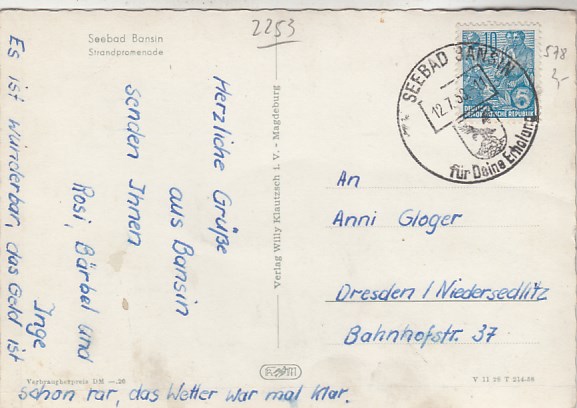 Seebad Bansin
Strandpromenade
2253
578
3,-
SEEBAD BANSIN
12.7.5
für Deine Erholung
10
DEUTSCHE
DEMOKRATISCHE REPUBLIK
Herzliche Grüße
aus Bansin
senden Ihnen
Rosi, Bärbel und
Inge
Es ist wunderbar, das Geld ist
schon rar, das Wetter war mal klar.
Verlag Willy Klautzsch i. V. - Magdeburg
An
Anni Gloger
Dresden / Niedersedlitz
Bahnhofstr. 37
Verbraucherpreis DM —.20
V 11 28 T 214-58